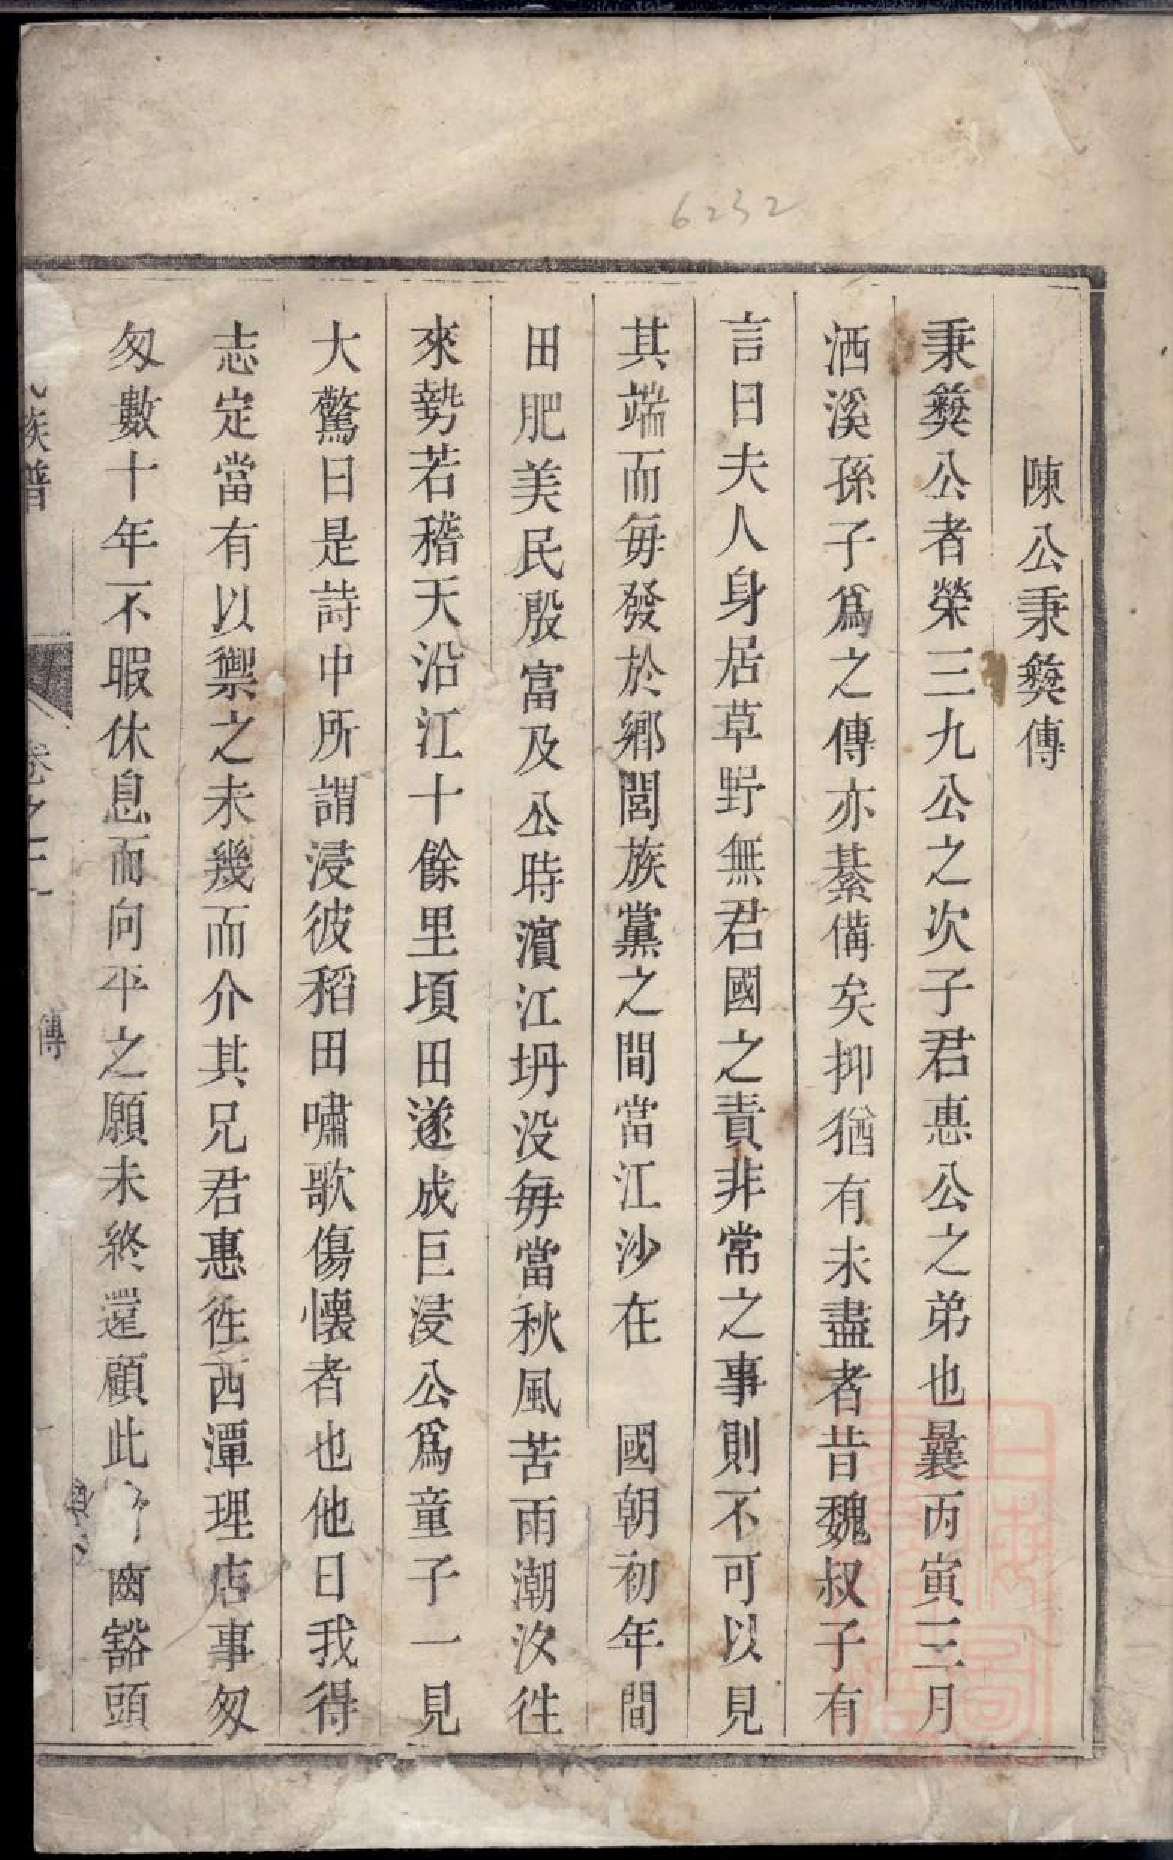 6232
陳公秉彜傳
秉彜公者榮三九公之次子君惠公之弟也曩丙寅三月
洒溪孫子爲之傳亦綦備矣抑猶有未盡者昔魏叔子有
言曰夫人身居草野無君國之責非常之事則不可以見
其端而每發於鄉閭族黨之間當江沙在　國朝初年間
田肥美民殷富及公時濵江坍没每當秋風苦雨潮汐徃
來勢若稽天沿江十餘里頃田遂成巨浸公爲童子一見
大驚曰是詩中所謂浸彼稻田嘯歌傷懐者也他日我得
志定當有以禦之未幾而介其兄君惠徃西潭理店事匆
匆數十年不暇休息而向平之願未終還顧此齒豁頭
族譜
卷之二
傳